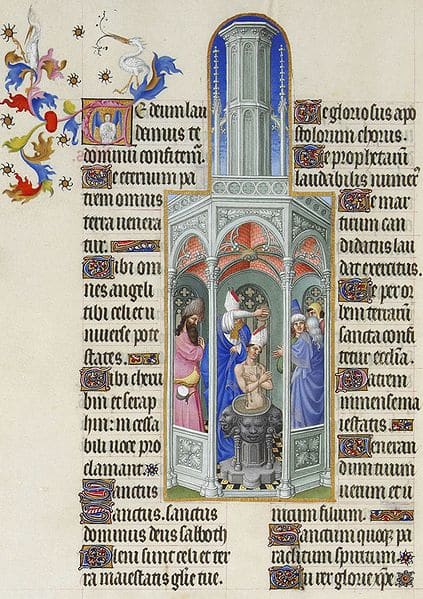 Te deum lau
damus te
dominū confitem̄.
Te eternum pa
trem omnis
terra uenera
tur.
Tibi om
nes angeli
tibi celi et u
niuerse pote
states.
Tibi cheru
bin et serap
hin: incessa
bili uoce pro
clamant.
Sanctus
Sanctus. sanctus
dominus deus sabboth
Pleni sunt celi et ter
ra maiestatis glīe tue.
Te gloriosus apo
stolorum chorus.
Te prophetarū
laudabilis numerꝰ
Te mar
tirum can
didatus lau
dat exercitus.
Te per or
bem terrarū
sancta confi
tetur ecclīa.
Patrem
immense ma
iestatis.
Ueneran
dum tuum
uerum et u
nicum filium.
Sanctum quoqꝫ pa
raclitum spiritum.
Tu rex glorie xp̄e.